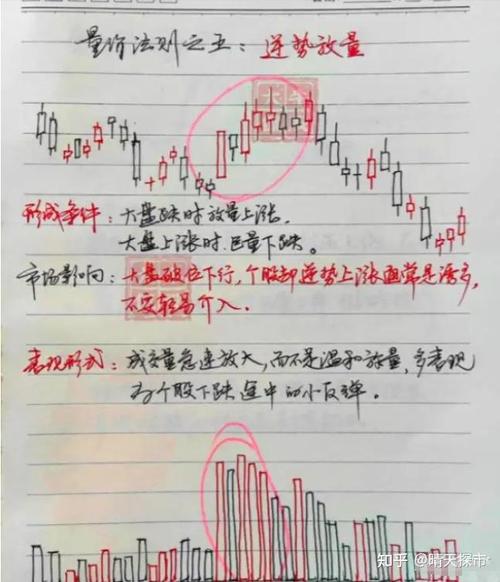 量价法则之五：逆势放量
形成条件：大盘跌时放量上涨，
大盘上涨时，巨量下跌。
市场影响：大盘破位下行，个股却逆势上涨通常是诱多，
不要轻易介入。
表现形式：成交量急速放大，而不是温和放量，多表现
为个股下跌途中的小反弹。
知乎 @晴天探市